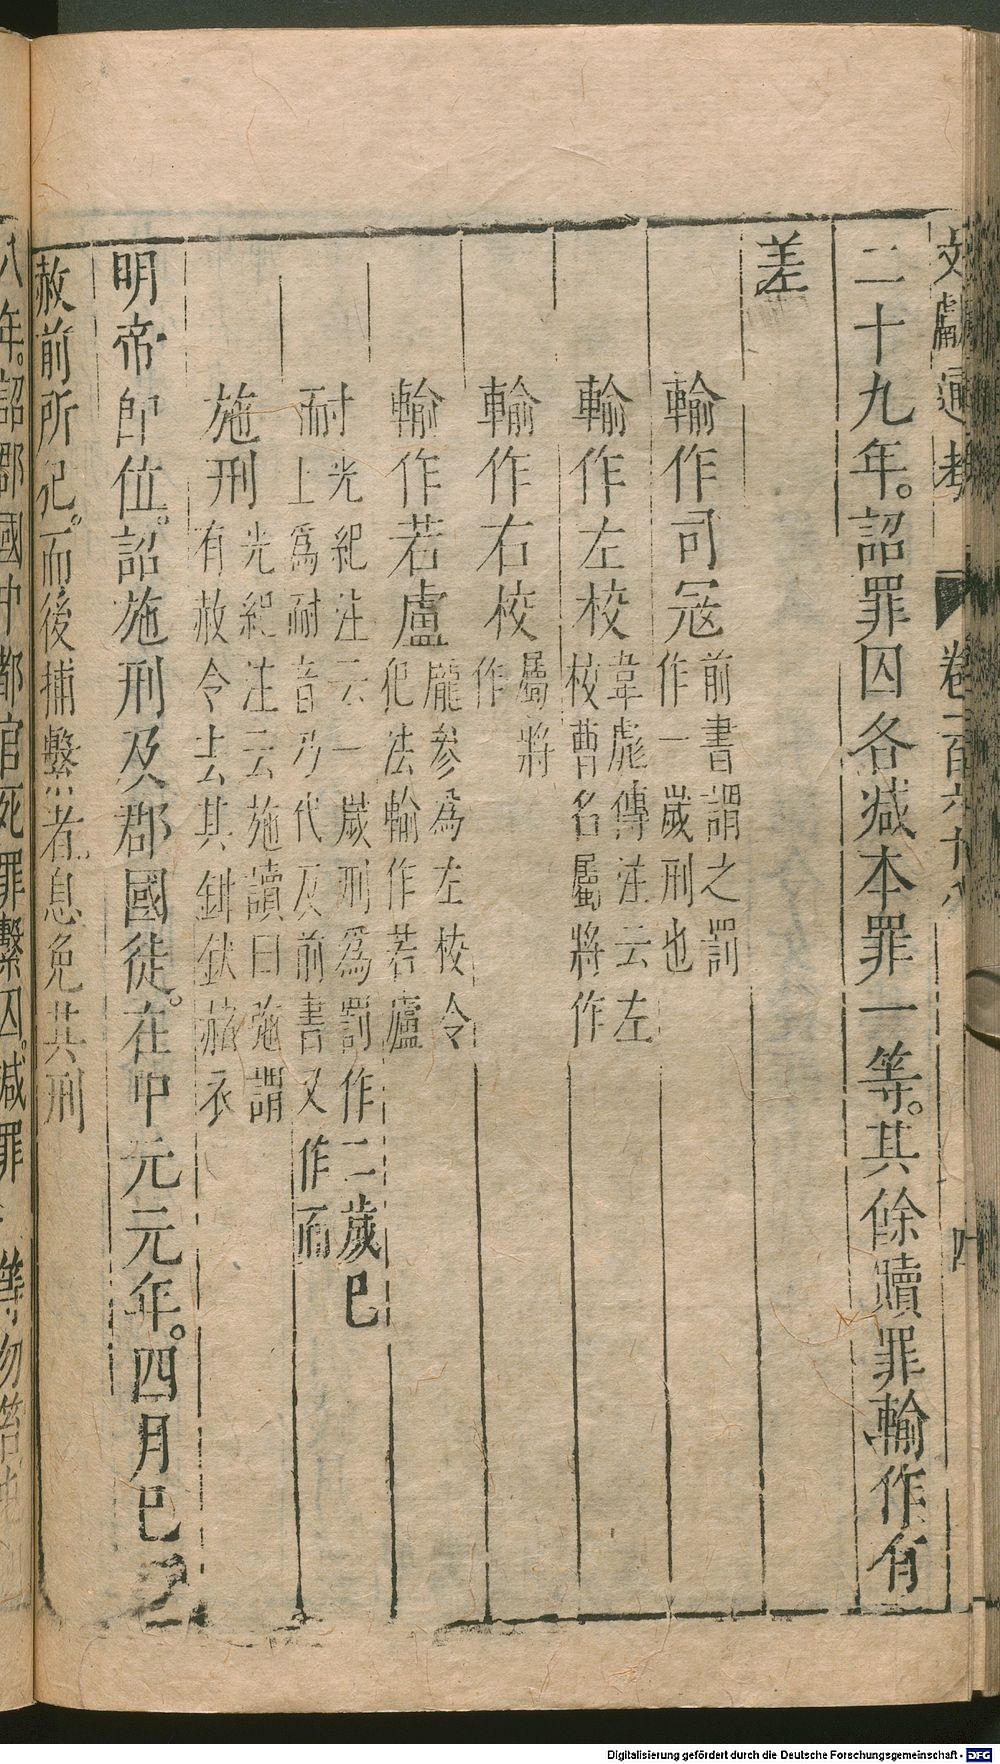 文獻通考 卷一百六十八 四
二十九年。詔罪囚各減本罪一等。其餘贖罪輸作有
差
輸作司冦 前書謂之罰作一歲刑也
輸作左校 韋彪傳注云左校曹名屬將作
輸作右校 屬將作
輸作若盧 龐參為左校令犯法輸作若廬
耐 光紀注云一歲刑爲罰作二歲巳上爲耐音乃代反前書又作而
施刑 光紀注云施讀曰弛謂有赦令去其鉗釱赭衣
明帝即位。詔施刑及郡國徒。在中元元年。四月巳
赦前所犯。而後捕繫者。息免其刑
八年。詔郡國中都官死罪繫囚。減罪一等勿笞
Digitalisierung gefördert durch die Deutsche Forschungsgemeinschaft - DFG